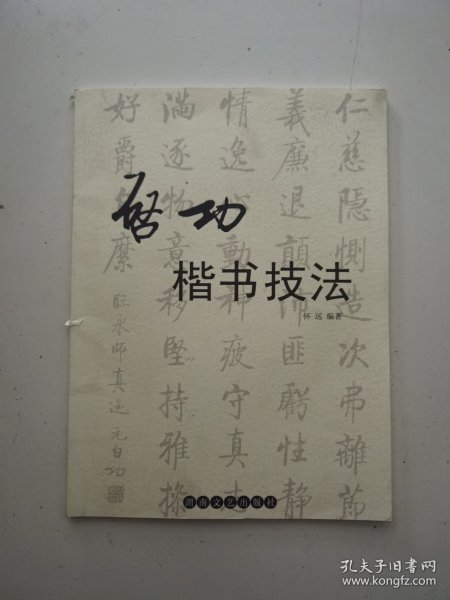 启功
楷书技法
怀远 编著
仁慈隐恻造次弗離節
義廉退顛沛匪虧性静
情逸心動神疲守真志
滿逐物意移堅持雅操
好爵自縻
臨永師真迹元白功
湖南文艺出版社
孔夫子旧书网
www.kongfz.com